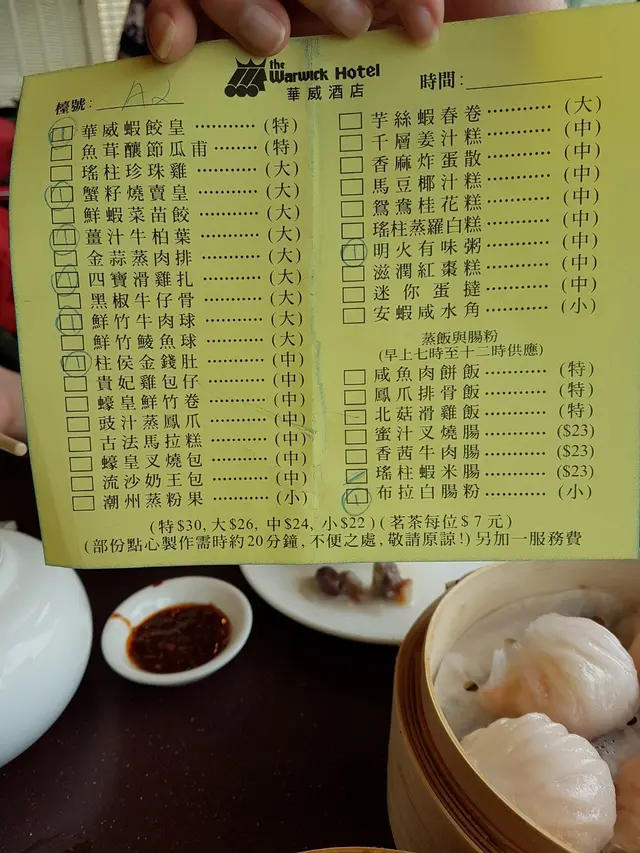 the
Warwick Hotel
華威酒店
檯號: A2
時間:
華威蝦餃皇 ············ (特)
魚茸釀節瓜甫 ········· (特)
瑤柱珍珠雞 ············ (大)
蟹籽燒賣皇 ············ (大)
鮮蝦菜苗餃 ············ (大)
薑汁牛柏葉 ············ (大)
金蒜蒸肉排 ············ (大)
四寶滑雞扎 ············ (大)
黑椒牛仔骨 ············ (大)
鮮竹牛肉球 ············ (大)
鮮竹鯪魚球 ············ (大)
柱侯金錢肚 ············ (中)
貴妃雞包仔 ············ (中)
蠔皇鮮竹卷 ············ (中)
豉汁蒸鳳爪 ············ (中)
古法馬拉糕 ············ (中)
蠔皇叉燒包 ············ (中)
流沙奶王包 ············ (中)
潮州蒸粉果 ············ (小)
芋絲蝦春卷 ············ (大)
千層姜汁糕 ············ (中)
香麻炸蛋散 ············ (中)
馬豆椰汁糕 ············ (中)
鴛鴦桂花糕 ············ (中)
瑤柱蒸羅白糕 ········· (中)
明火有味粥 ············ (中)
滋潤紅棗糕 ············ (中)
迷你蛋撻 ············ (中)
安蝦咸水角 ············ (小)
蒸飯與腸粉
(早上七時至十二時供應)
咸魚肉餅飯 ············ (特)
鳳爪排骨飯 ············ (特)
北菇滑雞飯 ············ (特)
蜜汁叉燒腸 ············ ($23)
香茜牛肉腸 ············ ($23)
瑤柱蝦米腸 ············ ($23)
布拉白腸粉 ············ (小)
(特$30, 大$26, 中$24, 小$22) (茗茶每位$7元)
(部份點心製作需時約20分鐘, 不便之處, 敬請原諒!) 另加一服務費